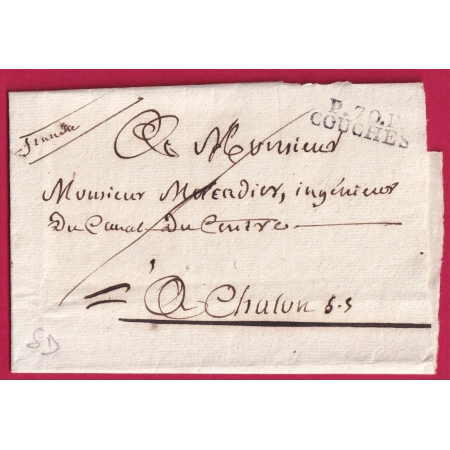 franche
P.70.P
COUCHES
A Monsieur
Monsieur Muerdier, ingénieur
Du Canal Du Centre
à
A Chalon s.s
SD